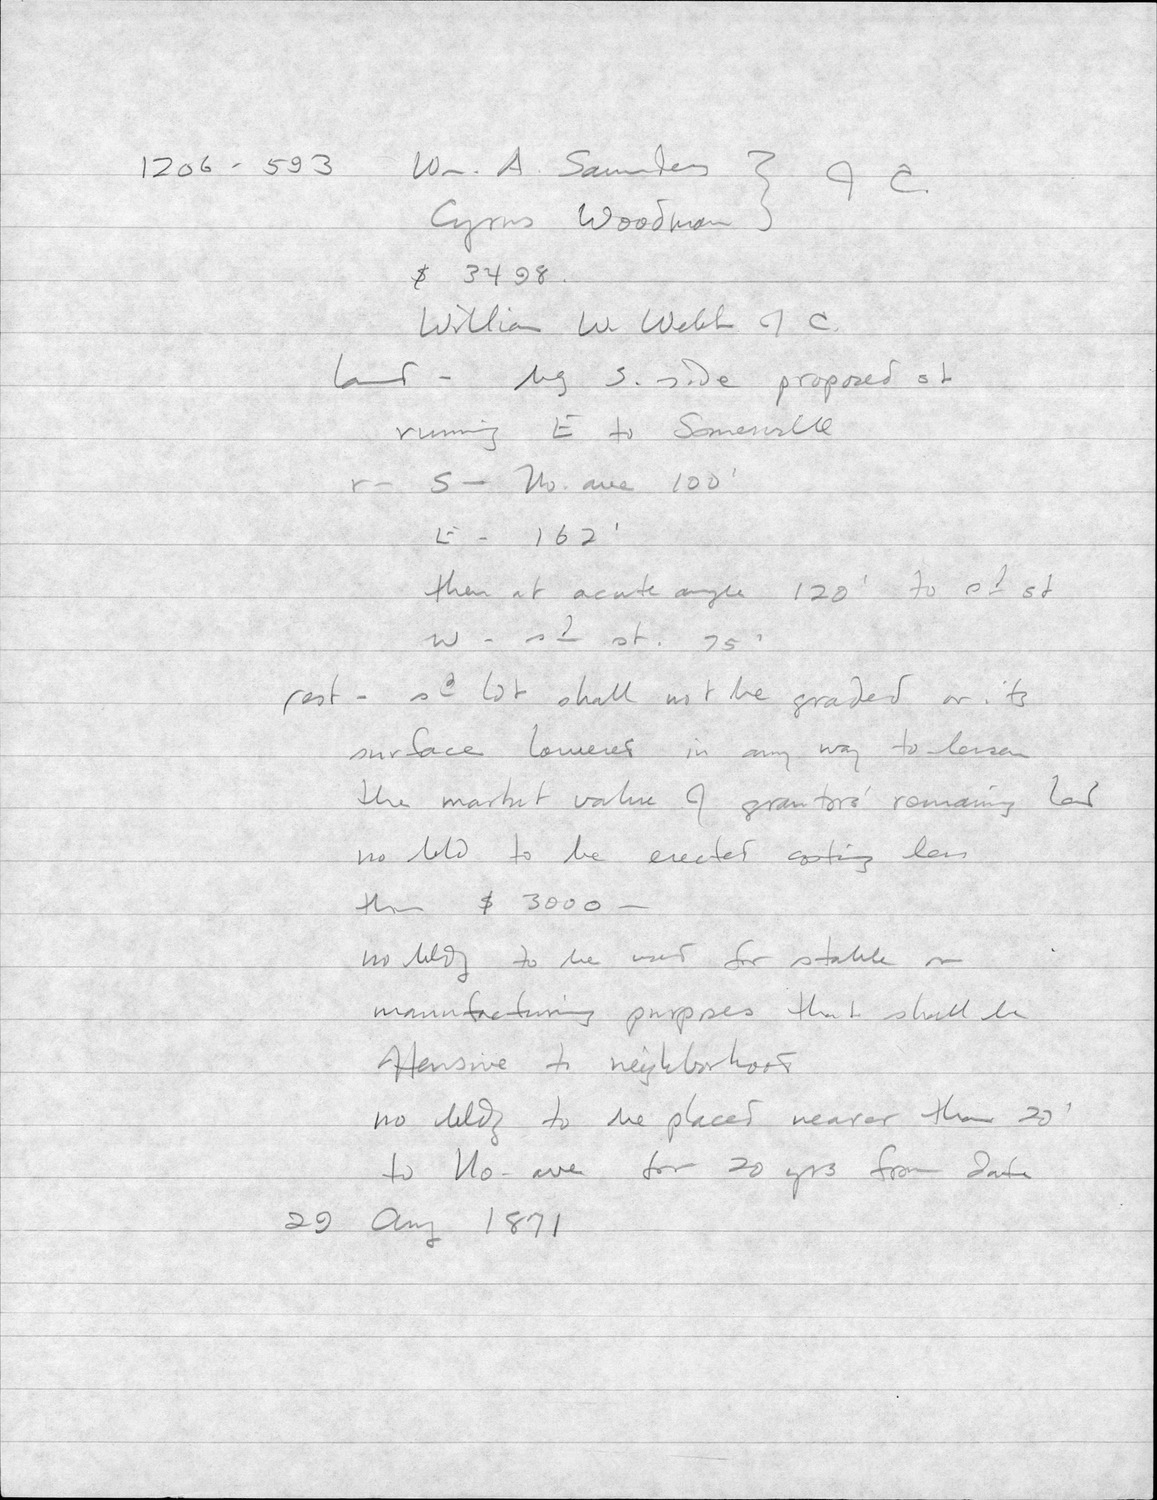 1206 - 593 Wm. A. Saunders } of C.
Cyrus Woodman
$ 3498.
William W. Webb of C.
land - beg S. side proposed st
running E to Somerville
r - S - No. ave 100'
E - 162'
then at acute angle 120' to sd st
W - sd st. 75'
rest - sd lot shall not be graded or its
surface lowered in any way to lessen
the market value of grantors' remaining land
no bld to be erected costing less
than $ 3000 -
no bldg to be used for stable or
manufacturing purposes that shall be
offensive to neighborhood
no bldg to be placed nearer than 20'
to No. ave for 20 yrs from date
29 Aug 1871